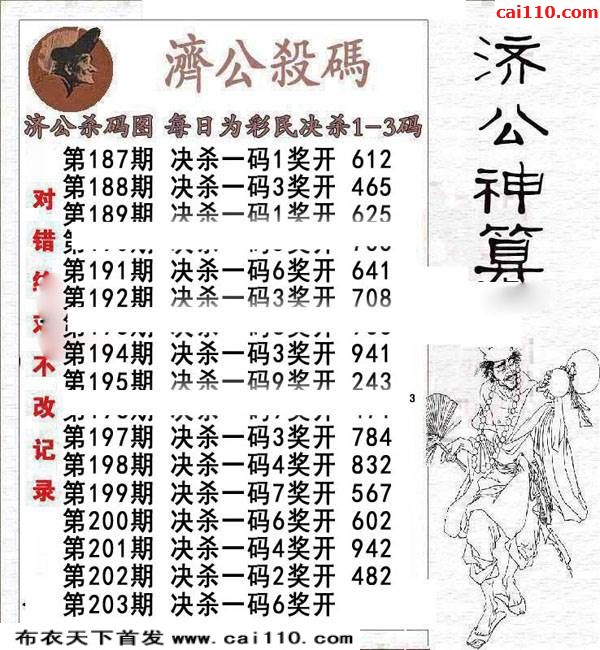 cai110.com
濟公殺碼
济公神算
济公杀码图 每日为彩民决杀1-3码
第187期 决杀一码1奖开 612
第188期 决杀一码3奖开 465
第189期 决杀一码1奖开 625
第191期 决杀一码6奖开 641
第192期 决杀一码3奖开 708
第194期 决杀一码3奖开 941
第195期 决杀一码9奖开 243
3
第197期 决杀一码3奖开 784
第198期 决杀一码4奖开 832
第199期 决杀一码7奖开 567
第200期 决杀一码6奖开 602
第201期 决杀一码4奖开 942
第202期 决杀一码2奖开 482
第203期 决杀一码6奖开
对错
不改记录
布衣天下首发 www.cai110.com